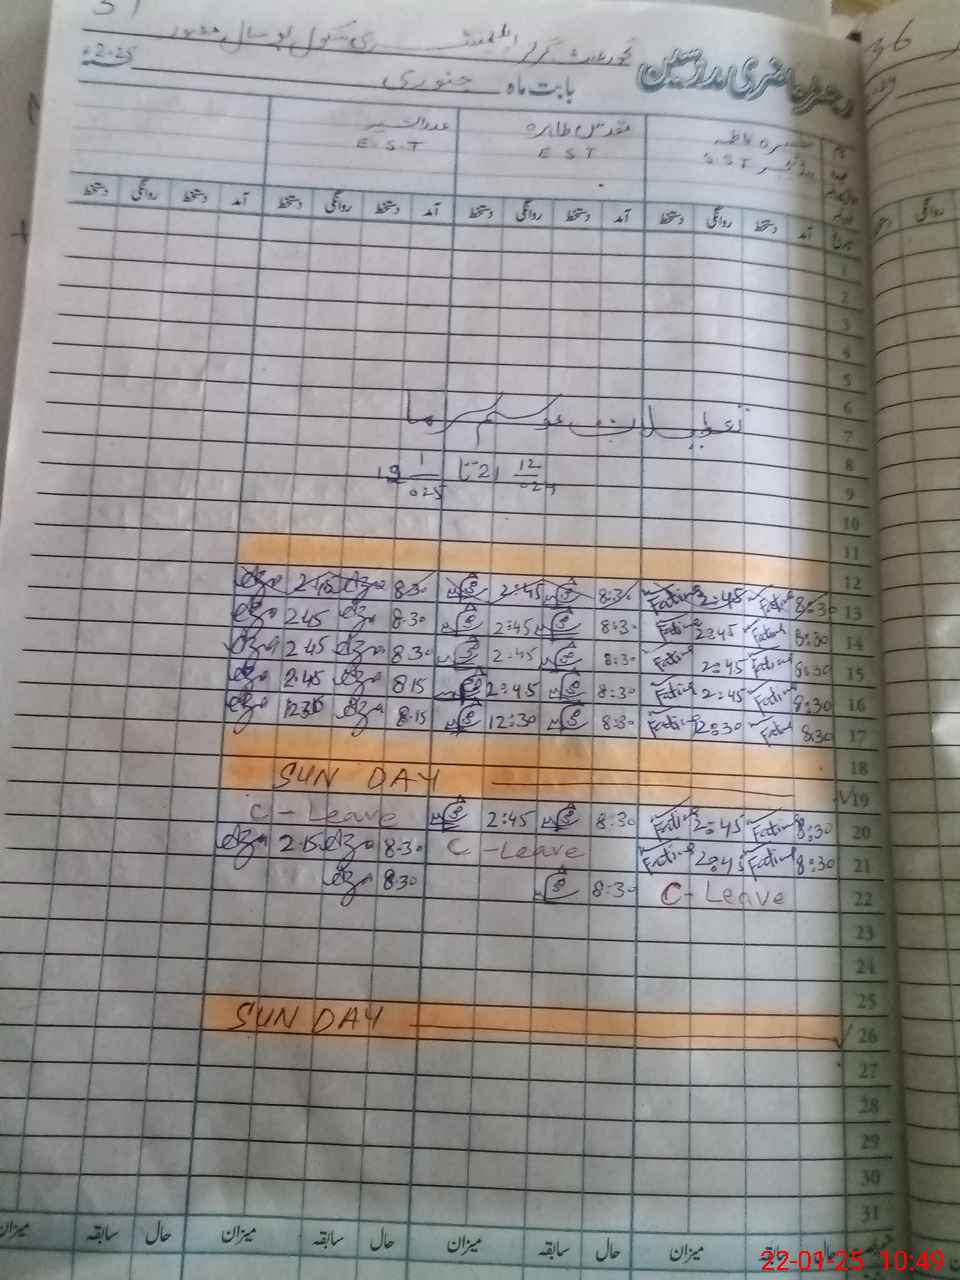 رجسٹر حاضری مدرسین
گورنمنٹ گرلز ایلیمنٹری سکول
بابت ماہ جنوری 2025ء
نام
مقدس طاہرہ
S S T
E S T
E.S.T
تاریخ آمد دستخط روانگی دستخط آمد دستخط روانگی دستخط آمد دستخط روانگی دستخط آمد دستخط روانگی دستخط
روانگی
36
1
2
3
4
5
6
تعطیلات موسم سرما
7
8
21 12/024 تا 19 1/025
9
10
11
12
13 8:30 Fatima 2:45 Fatima 8:30 2:45 8:30 2:45
14 8:30 Fatima 2:45 Fatima 8:30 2:45 8.30 2.45
15 8:30 Fatima 2:45 Fatima 8:30 2:45 8.30 2.45
16 8:30 Fatima 2:45 Fatima 8:30 2:45 8.15 2.45
17 8:30 Fatima 12:30 Fatima 8:30 12:30 8.15
18
19 SUN DAY
20 8:30 Fatima 2:45 Fatima 8:30 2:45 C - Leave
21 8:30 Fatima 2:45 Fatima C - Leave 8.30 2.15
22 C - Leave 8:30 8.30
23
24
25
26 SUN DAY
27
28
29
30
31
حال سابقہ میزان حال سابقہ میزان حال سابقہ میزان حال سابقہ میزان
22-01-25 10:49